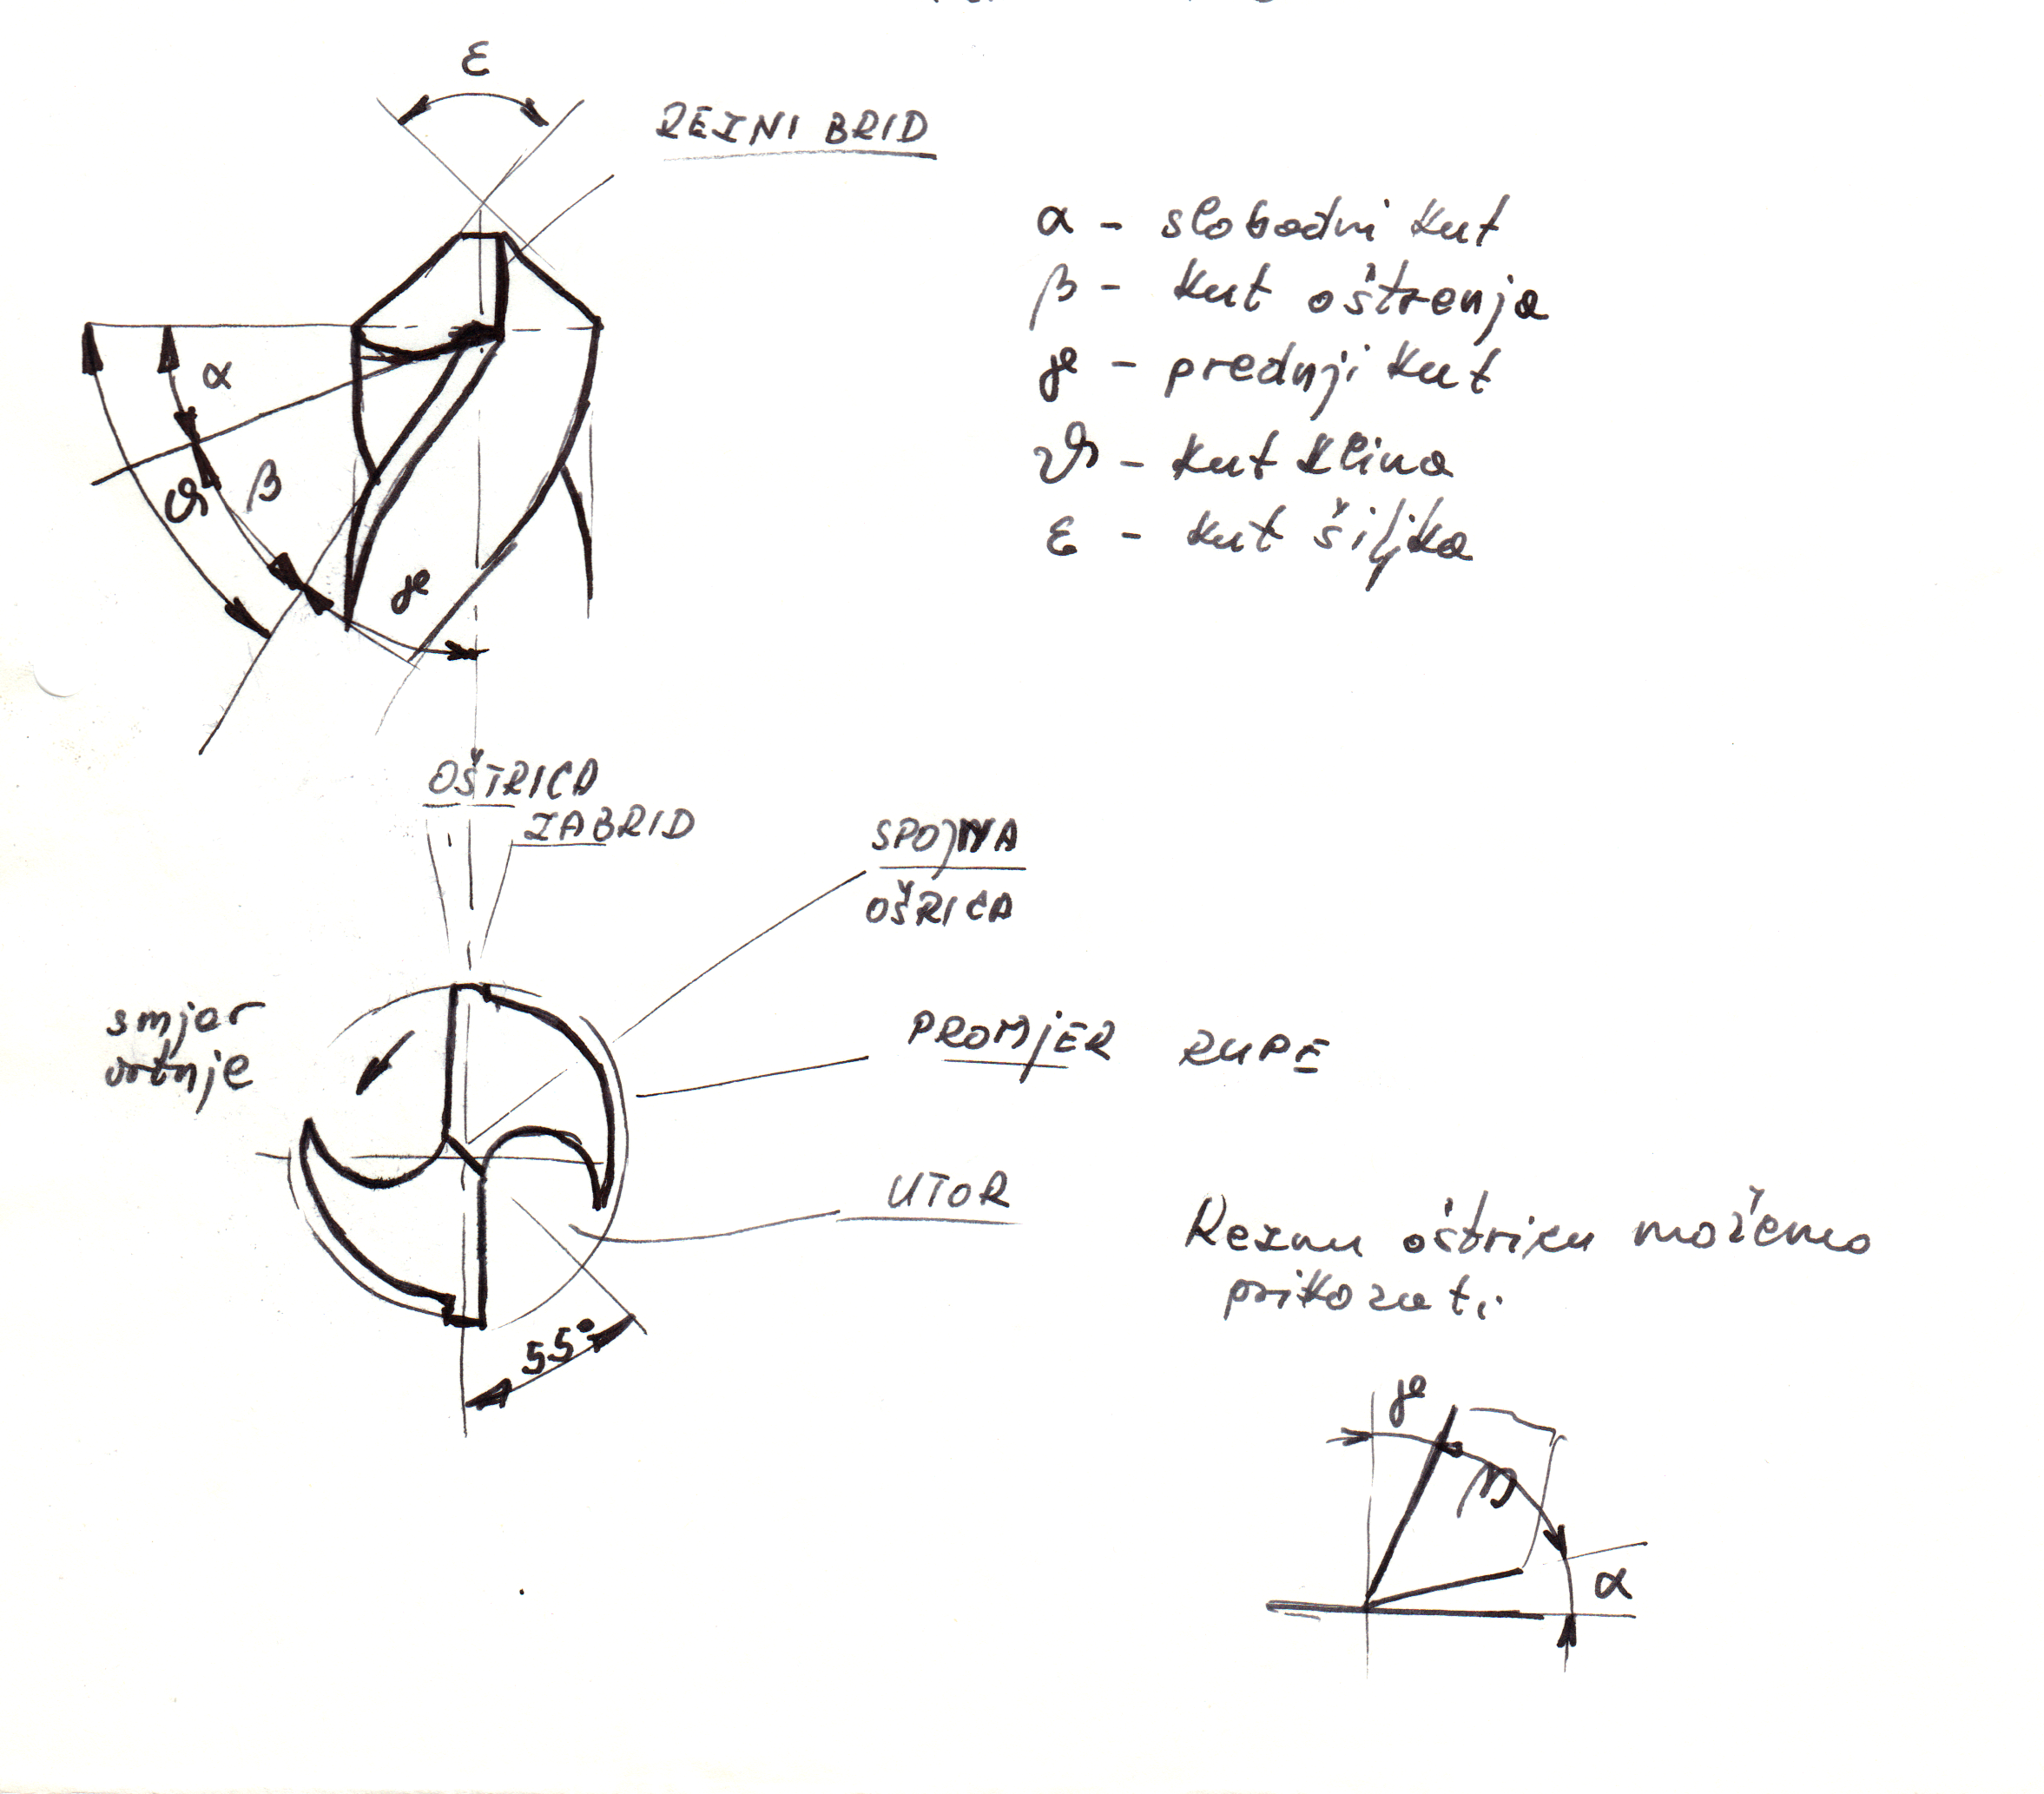 ε
REZNI BRID
α - slobodni kut
β - kut oštrenja
γ - prednji kut
ϑ - kut klina
ε - kut šiljka
α
β
ϑ
γ
OŠTRICA
ZABRID
SPOJNA
OŠRICA
smjer
vrtnje
PROMJER RUPE
UTOR
55°
Reznu oštricu možemo
prikazati
γ
β
α